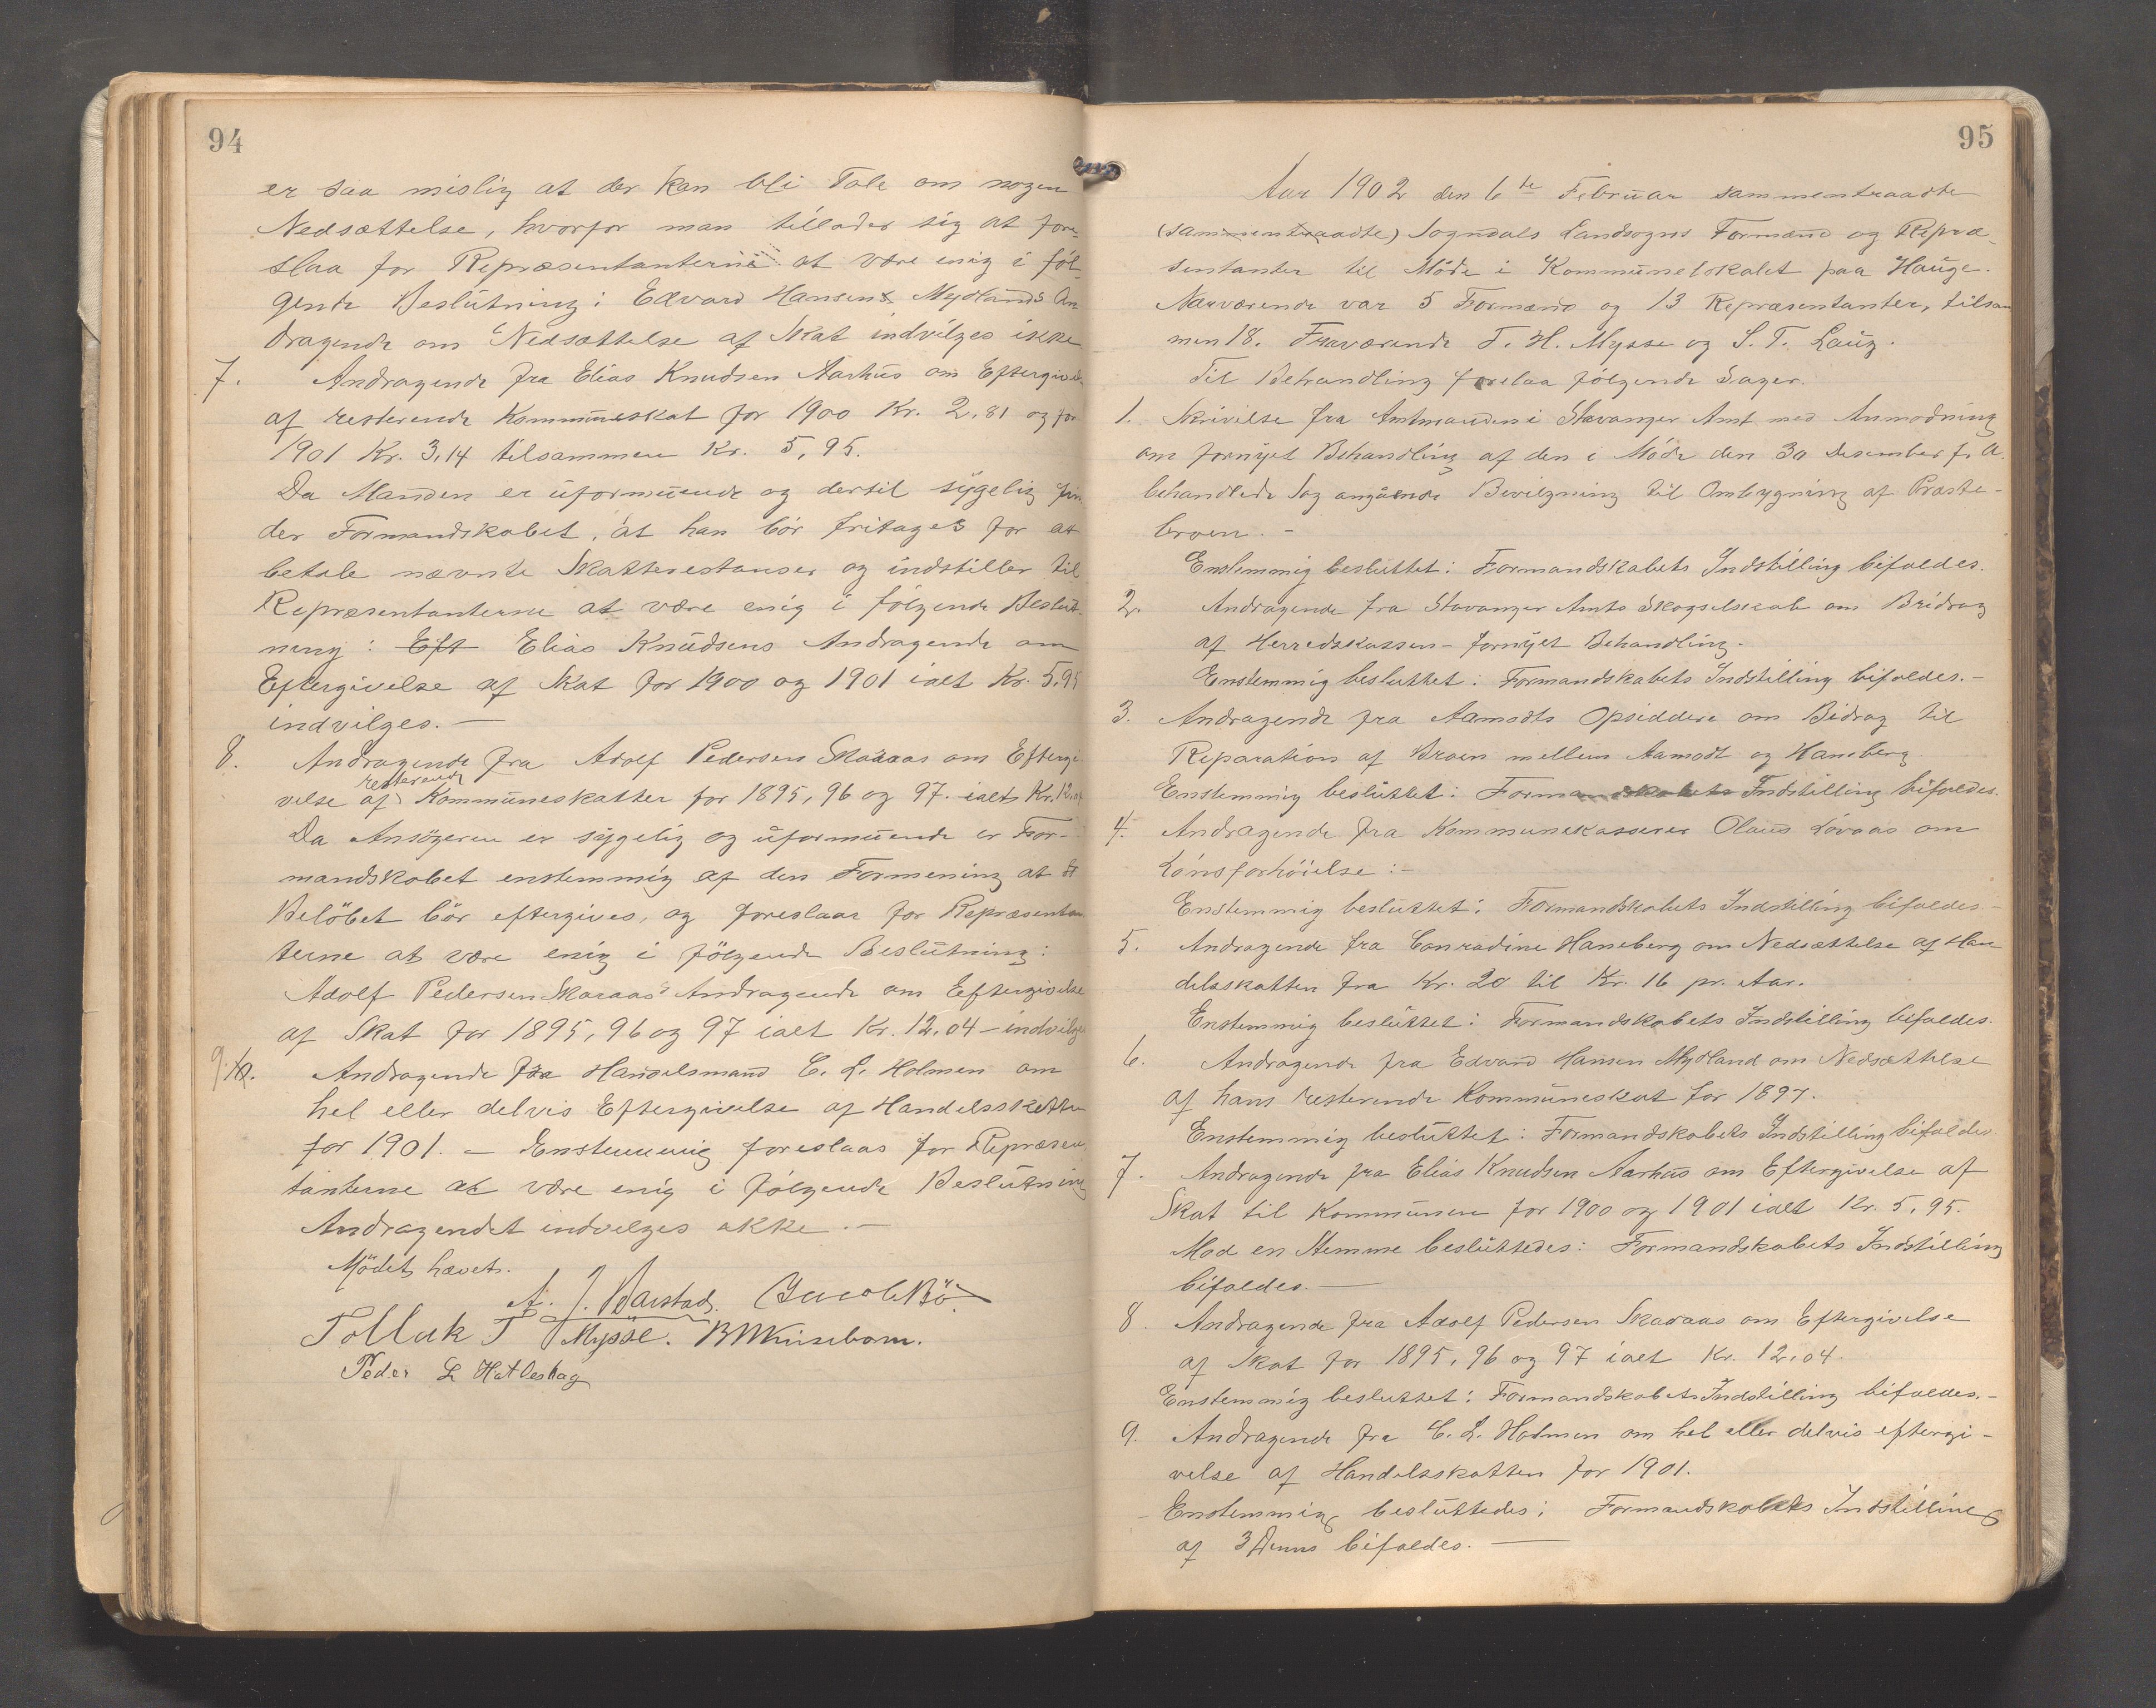 94
er saa mislig at der kan bli Tale om nogen
Nedsættelse, hvorfor man tillader sig at fore-
slaa for Repræsentanterne at være enig i föl-
gende Beslutning: Edvard Hansens Mydlands An
dragende om Nedsættelse af Skat indvilges ikke
7. Andragende fra Elias Knudsen Aarhus om Eftergivelse
af resterende Kommuneskat for 1900 Kr. 2,81 og for
1901 Kr. 3,14 tilsammen Kr. 5,95.
Da Manden er uformuende og dertil sygelig fin
der Formandskabet, at han bör fritages for at
betale nævnte Skatterestanser og indstiller til
Repræsentanterne at være enig i fölgende Beslut-
ning: Eft Elias Knudsens Andragende om
Eftergivelse af Skat for 1900 og 1901 ialt Kr. 5,95
indvilges. —
8. Andragende fra Adolf Pedersen Skaraas om Eftergi-
resterende
velse af Kommuneskatter for 1895, 96 og 97. ialt Kr. 12,04
Da Ansögeren er sygelig og uformuende er For-
mandskabet enstemmig af den Formening at
Belöbet bör eftergives, og foreslaar for Repræsentan-
terne at være enig i fölgende Beslutning:
Adolf Pedersen Skaraas' Andragende om Eftergivelse
af Skat for 1895, 96 og 97 ialt Kr. 12,04 – indvilges
9. 10. Andragende fra Handelsmand C. L. Holmen om
hel eller delvis Eftergivelse af Handelsskatten
for 1901. – Enstemmig foreslaas for Repræsen
tanterne at være enig i fölgende Beslutning
Andragendet indvilges ikke. —
Mödet hævet.
A. J. Barstad. Jacob Bö.
Tollak T Mysse. B M Kinseborn.
Peder L Hatleskag
95
Aar 1902 den 6te Februar sammentraadte
(sammentraadte) Sogndals Landsogns Formænd og Repræ-
sentanter til Möde i Kommunelokalet paa Hauge.
Nærværende var 5 Formænd og 13 Repræsentanter, tilsam
men 18. Fraværende T. H. Mysse og S. T. Laug.
Til Behandling forelaa fölgende Sager.
1. Skrivelse fra Amtmanden i Stavanger Amt med Anmodning
om fornyet Behandling af den i Möde den 30 Desember f. A.
behandlede Sag angående Bevilgning til Ombygning af Præste-
broen. –
Enstemmig besluttet: Formandskabets Indstilling bifaldes.
2. Andragende fra Stavanger Amts Skogselskab om Bidrag
af Herredskassen – fornyet Behandling.
Enstemmig besluttet: Formandskabets Indstilling bifaldes. –
3. Andragende fra Aamodts Opsiddere om Bidrag til
Reparation af Broen mellem Aamodt og Haneberg.
Enstemmig besluttet: Formandskabets Indstilling bifaldes.
4. Andragende fra Kommunekasserer Olaus Lövaas om
Lönsforhöielse: –
Enstemmig besluttet: Formandskabets Indstilling bifaldes –
5. Andragende fra Conradine Haneberg om Nedsættelse af Han
delsskatten fra Kr. 20 til Kr. 16 pr. Aar.
Enstemmig besluttet: Formandskabets Indstilling bifaldes.
6. Andragende fra Edvard Hansen Mydland om Nedsættelse
af hans resterende Kommuneskat for 1897.
Enstemmig besluttet: Formandskabets Indstilling bifaldes
7. Andragende fra Elias Knudsen Aarhus om Eftergivelse af
Skat til Kommunen for 1900 og 1901 ialt Kr. 5,95.
Mod en Stemme besluttedes: Formandskabets Indstilling
bifaldes. —
8. Andragende fra Adolf Pedersen Skaraas om Eftergivelse
af Skat for 1895, 96 og 97 ialt Kr. 12,04.
Enstemmig besluttet: Formandskabets Indstilling bifaldes. –
9. Andragende fra C. L. Holmen om hel eller delvis eftergi-
velse af Handelsskatten for 1901.
Enstemmig besluttedes: Formandskabets Indstilling
af 3 Dennes bifaldes. —